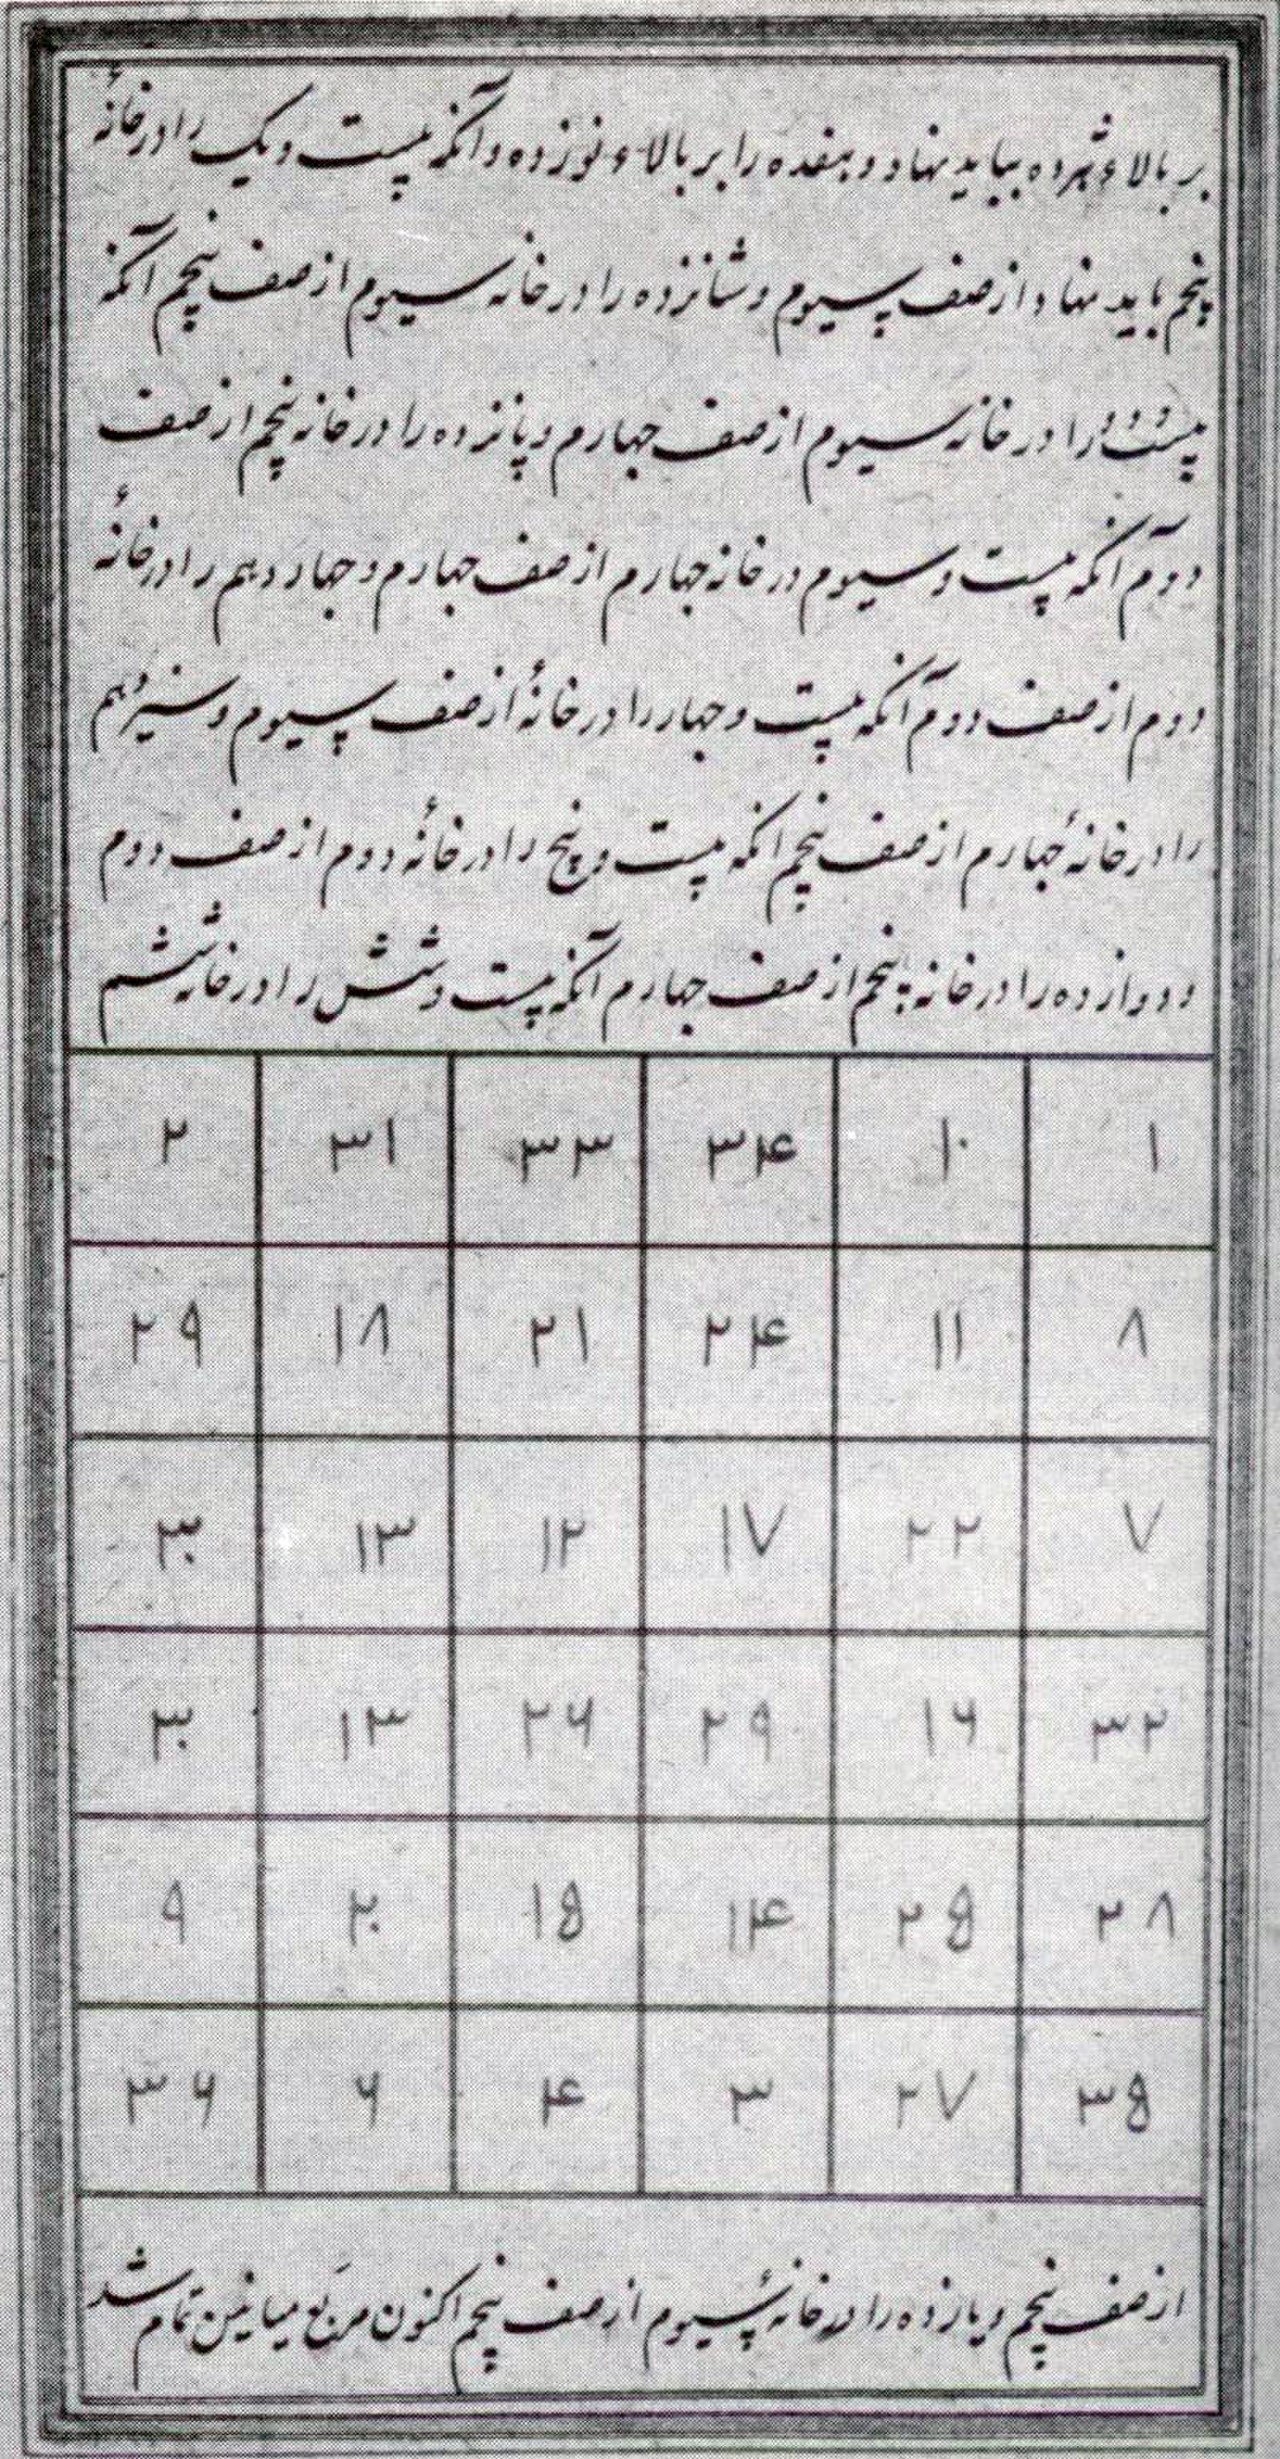 بر بالاء شهرده بباید نهاد و هفده را بر بالاء نوزده و آنکه بیست و یک را در خانهٔ
پنجم باید نهاد از صف سیوم و شانزده را در خانه سیوم از صف پنجم آنکه
بیست و دو را در خانه سیوم از صف چهارم و پانزده را در خانه پنجم از صف
دوم آنکه بیست و سیوم در خانه چهارم از صف چهارم و چهاردهم را در خانهٔ
دوم از صف دوم آنکه بیست و چهار را در خانهٔ از صف سیوم و سیزدهم
را در خانهٔ چهارم از صف پنجم انکه بیست و پنج را در خانهٔ دوم از صف دوم
و دوازده را در خانه پنجم از صف چهارم آنکه بیست و شش را در خانه ششم
۲ ۳۱ ۳۳ ۳۴ ۱۰ ۱
۲۹ ۱۸ ۲۱ ۲۴ ۱۱ ۸
۳۰ ۱۳ ۱۲ ۱۷ ۲۲ ۷
۳۰ ۱۳ ۲۶ ۲۹ ۱۶ ۳۲
۹ ۲۰ ۱۵ ۱۴ ۲۵ ۲۸
۳۶ ۶ ۴ ۳ ۲۷ ۳۵
از صف پنجم و یازده را در خانهٔ سیوم از صف پنجم اکنون مربع میانین تمام شد